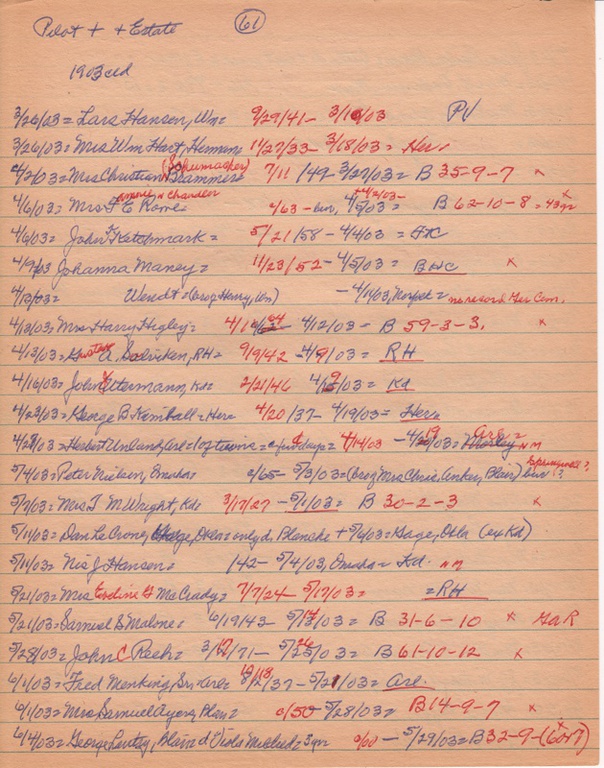 Pilot + + Estate 61
1903 ctd
3/26/03 = Lars Hansen, Wn = 9/29/41 - 3/16/03 PV
3/26/03 = Mrs Wm Hart, Hermann 11/27/33 - 3/18/03 = Her =
4/2/03 = Mrs Christian (Schumacher) Brammer = 7/11/49 - 3/27/03 = B 35-9-7 x
4/6/03 = Mrs F E Rowe = Chandler 2/63 - 4/5/03 = B 62-10-8 = 43 yr x
4/6/03 = John F Ketchmark = 5/21/58 - 4/4/03 =
4/9/03 Johanna Maney = 11/23/52 - 4/5/03 = B HC x
Wendt = (bro of Henry, Wn) - 4/1/03, = no resord Ger Cem.
4/13/03 = Mrs Harry Higley = 4/12/03 - B 59-3-3, x
4/13/03 = Gustav A. RH = 9/9/42 - 4/9/03 = RH
4/16/03 = John Ottermann, Kd = 2/21/46 = Kd
4/23/03 = George B Kimball = Her = 4/20/37 - 4/19/03 = Her =
4/28/03 = Herbert Unland, Arl = 1 of twins = 4/14/03 - Arl = NM
5/4/03 = Peter Nielsen, Omaha = c/65 - 5/3/03 = (bro of Mrs Chris Blair)
5/7/03 = Mrs T M Wright, Kd = 3/17/27 - 5/1/03 = B 30-2-3 x
5/11/03 = Dan La Crone, Gage, Okla = only d. Blanche + 5/6/03 = Gage, Okla (ex Kd)
5/11/03 = Nis J Hansen = /42 - 5/4/03, Omaha = Kd. NM
5/21/03 = Mrs Erdine G McCrady = 7/7/24 - 5/17/03 = = RH
5/21/03 = Samuel S Malone = 6/19/43 - 5/14/03 = B 31-6-10 x GaR
5/28/03 = John C Reeh = 3/17/71 - 5/26/03 = B 61-10-12 x
6/1/03 = Fred Menking, Sr = Arl = - 5/21/03 = Arl.
6/1/03 = Mrs Samuel Ayers, Blair = c/50 - 5/28/03 = B 14-9-7 x
6/4/03 = George Lantry, Blair d Viola = 3 yr c/00 - 5/29/03 = B 32-9-(6 or 7) x